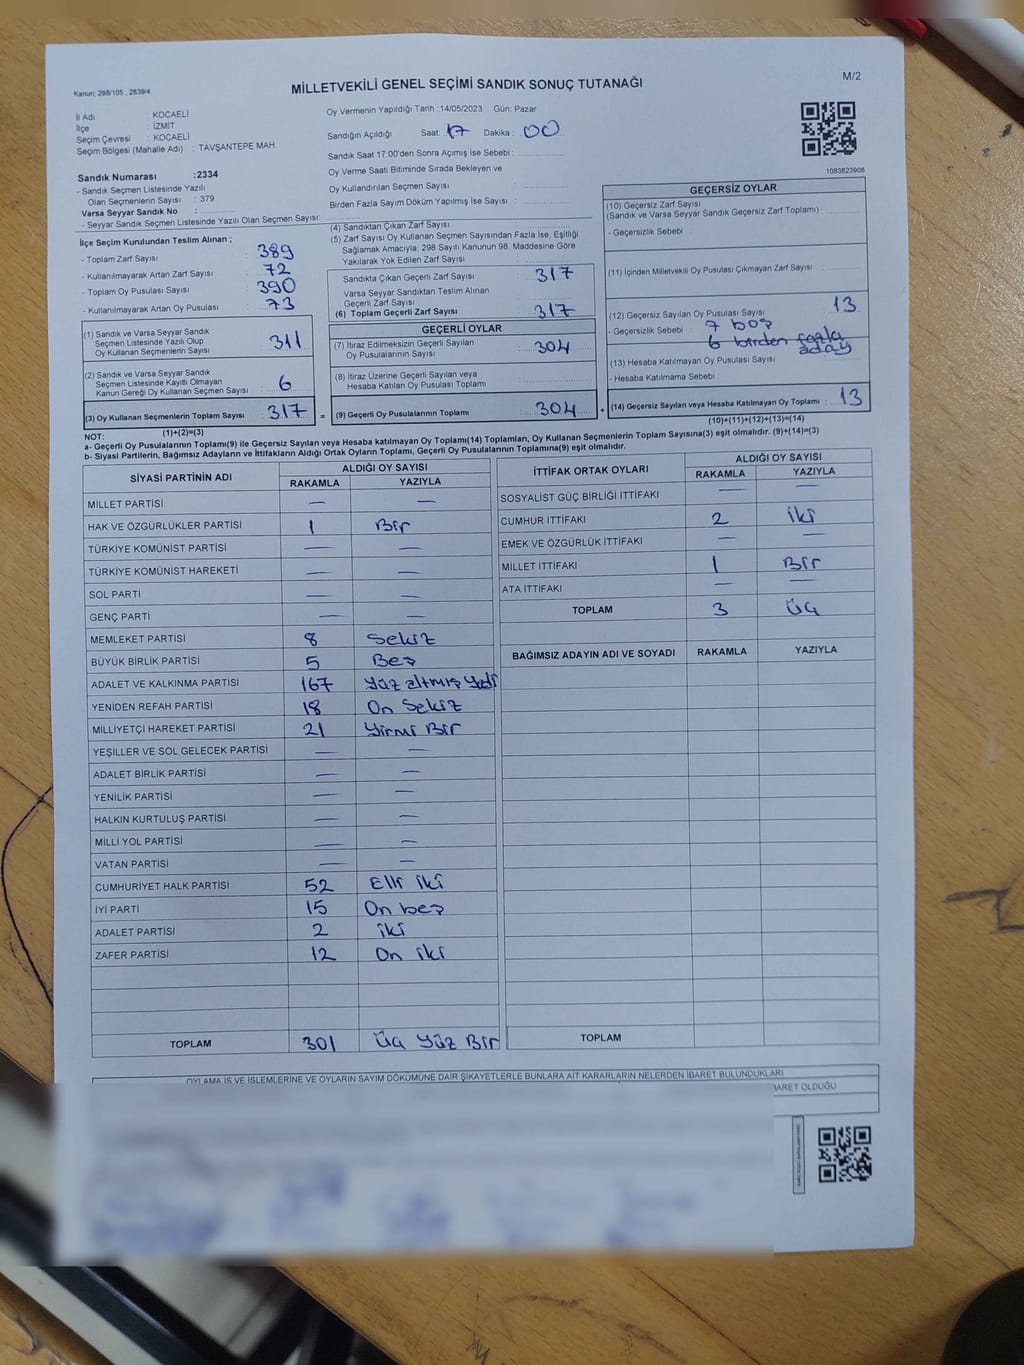 M/2
Kanun: 298/105 , 2839/4
MİLLETVEKİLİ GENEL SEÇİMİ SANDIK SONUÇ TUTANAĞI
İl Adı : KOCAELİ
İlçe : İZMİT
Seçim Çevresi : KOCAELİ
Seçim Bölgesi (Mahalle Adı) : TAVŞANTEPE MAH.
Sandık Numarası :2334
- Sandık Seçmen Listesinde Yazılı
Olan Seçmenlerin Sayısı : 379
Varsa Seyyar Sandık No :
- Seyyar Sandık Seçmen Listesinde Yazılı Olan Seçmen Sayısı:
Oy Vermenin Yapıldığı Tarih :14/05/2023 Gün: Pazar
Sandığın Açıldığı Saat: 17 Dakika : 00
Sandık Saat 17:00'den Sonra Açımış İse Sebebi :
Oy Verme Saati Bitiminde Sırada Bekleyen ve
Oy Kullandırılan Seçmen Sayısı :
Birden Fazla Sayım Döküm Yapılmış İse Sayısı :
1083823908
İlçe Seçim Kurulundan Teslim Alınan ;
- Toplam Zarf Sayısı : 389
- Kullanılmayarak Artan Zarf Sayısı : 72
- Toplam Oy Pusulası Sayısı : 390
- Kullanılmayarak Artan Oy Pusulası : 73
(1) Sandık ve Varsa Seyyar Sandık
Seçmen Listesinde Yazılı Olup
Oy Kullanan Seçmenlerin Sayısı : 311
(2) Sandık ve Varsa Seyyar Sandık
Seçmen Listesinde Kayıtlı Olmayan
Kanun Gereği Oy Kullanan Seçmen Sayısı : 6
(3) Oy Kullanan Seçmenlerin Toplam Sayısı : 317 =
(1)+(2)=(3)
(4) Sandıktan Çıkan Zarf Sayısı :
(5) Zarf Sayısı Oy Kullanan Seçmen Sayısından Fazla İse, Eşitliği
Sağlamak Amacıyla; 298 Sayılı Kanunun 98. Maddesine Göre
Yakılarak Yok Edilen Zarf Sayısı :
Sandıkta Çıkan Geçerli Zarf Sayısı : 317
Varsa Seyyar Sandıktan Teslim Alınan
Geçerli Zarf Sayısı :
(6) Toplam Geçerli Zarf Sayısı : 317
GEÇERLİ OYLAR
(7) İtiraz Edilmeksizin Geçerli Sayılan
Oy Pusulalarının Sayısı : 304
(8) İtiraz Üzerine Geçerli Sayılan veya
Hesaba Katılan Oy Pusulası Toplamı :
(9) Geçerli Oy Pusulalarının Toplamı : 304 +
GEÇERSİZ OYLAR
(10) Geçersiz Zarf Sayısı
(Sandık ve Varsa Seyyar Sandık Geçersiz Zarf Toplamı) :
- Geçersizlik Sebebi :
(11) İçinden Milletvekili Oy Pusulası Çıkmayan Zarf Sayısı :
(12) Geçersiz Sayılan Oy Pusulası Sayısı : 13
- Geçersizlik Sebebi : 7 boş
6 birden fazla
aday
(13) Hesaba Katılmayan Oy Pusulası Sayısı :
- Hesaba Katılmama Sebebi :
(14) Geçersiz Sayılan veya Hesaba Katılmayan Oy Toplamı : 13
(10)+(11)+(12)+(13)=(14)
NOT:
a- Geçerli Oy Pusulalarının Toplamı(9) ile Geçersiz Sayılan veya Hesaba katılmayan Oy Toplamı(14) Toplamları, Oy Kullanan Seçmenlerin Toplam Sayısına(3) eşit olmalıdır. (9)+(14)=(3)
b- Siyasi Partilerin, Bağımsız Adayların ve İttifakların Aldığı Ortak Oyların Toplamı, Geçerli Oy Pusulalarının Toplamına(9) eşit olmalıdır.
SİYASİ PARTİNİN ADI ALDIĞI OY SAYISI
RAKAMLA YAZIYLA
MİLLET PARTİSİ — —
HAK VE ÖZGÜRLÜKLER PARTİSİ 1 Bir
TÜRKİYE KOMÜNİST PARTİSİ — —
TÜRKİYE KOMÜNİST HAREKETİ — —
SOL PARTİ — —
GENÇ PARTİ — —
MEMLEKET PARTİSİ 8 Sekiz
BÜYÜK BİRLİK PARTİSİ 5 Beş
ADALET VE KALKINMA PARTİSİ 167 Yüz altmış Yedi
YENİDEN REFAH PARTİSİ 18 On Sekiz
MİLLİYETÇİ HAREKET PARTİSİ 21 Yirmi Bir
YEŞİLLER VE SOL GELECEK PARTİSİ — —
ADALET BİRLİK PARTİSİ — —
YENİLİK PARTİSİ — —
HALKIN KURTULUŞ PARTİSİ — —
MİLLİ YOL PARTİSİ — —
VATAN PARTİSİ — —
CUMHURİYET HALK PARTİSİ 52 Elli iki
İYİ PARTİ 15 On beş
ADALET PARTİSİ 2 iki
ZAFER PARTİSİ 12 On iki
TOPLAM 301 Üç Yüz Bir
İTTİFAK ORTAK OYLARI ALDIĞI OY SAYISI
RAKAMLA YAZIYLA
SOSYALİST GÜÇ BİRLİĞİ İTTİFAKI — —
CUMHUR İTTİFAKI 2 iki
EMEK VE ÖZGÜRLÜK İTTİFAKI — —
MİLLET İTTİFAKI 1 Bir
ATA İTTİFAKI — —
TOPLAM 3 Üç
BAĞIMSIZ ADAYIN ADI VE SOYADI RAKAMLA YAZIYLA
TOPLAM
OYLAMA İŞ VE İŞLEMLERİNE VE OYLARIN SAYIM DÖKÜMÜNE DAİR ŞİKAYETLERLE BUNLARA AİT KARARLARIN NELERDEN İBARET BULUNDUKLARI
BARET OLDUĞU